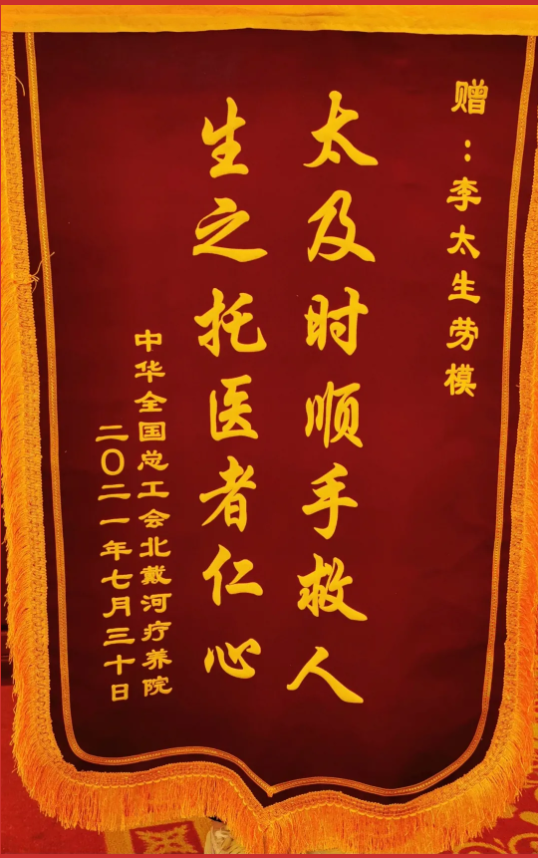 赠：李太生劳模
太及时顺手救人
生之托医者仁心
中华全国总工会北戴河疗养院
二〇二一年七月三十日